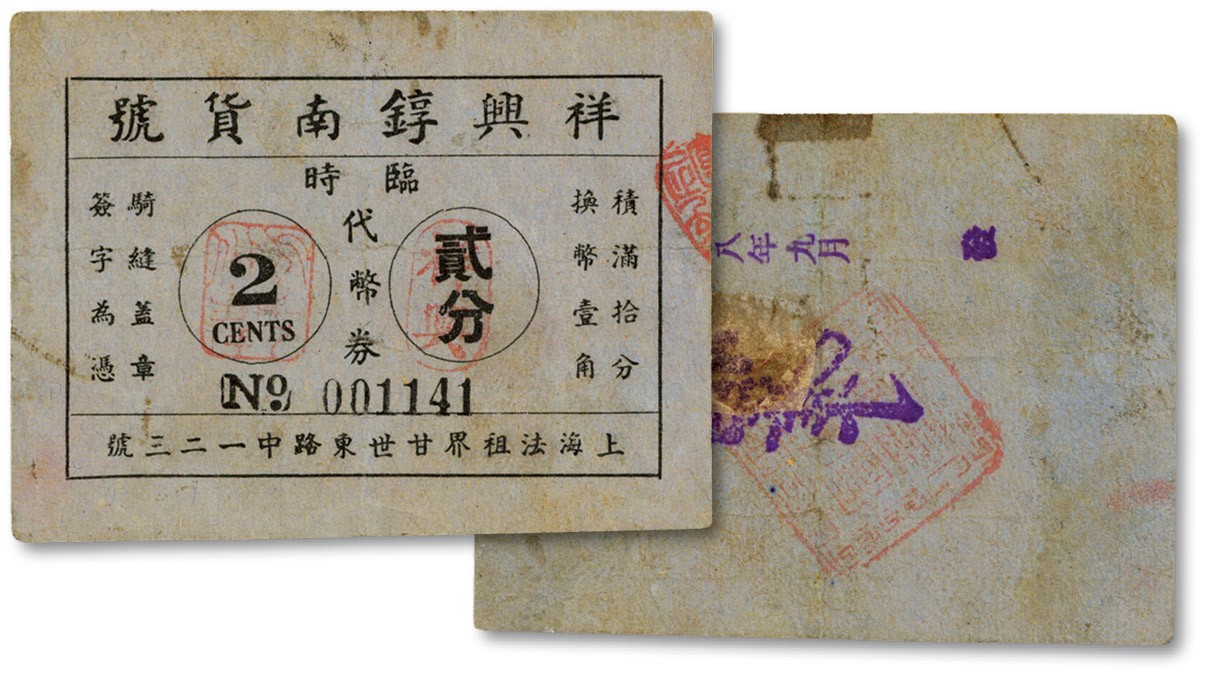 祥興錞南貨號
臨時
代幣券
積滿拾分
換幣壹角
貳分
2
CENTS
騎縫蓋章
簽字為憑
No 001141
上海法租界甘世東路中一二三號
八年九月